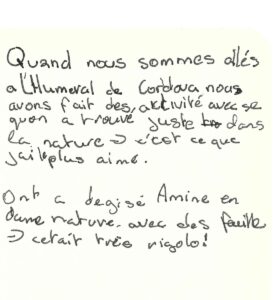 Quand nous sommes allés
a l'Humeval de Cordova nous
avons fait des activité avec se
quon a trouve juste dans
la nature => c'est ce que
jai le plus aimé.
Ont a degisé Amine en
dame nature avec des feuille
=> cetait très rigolo!